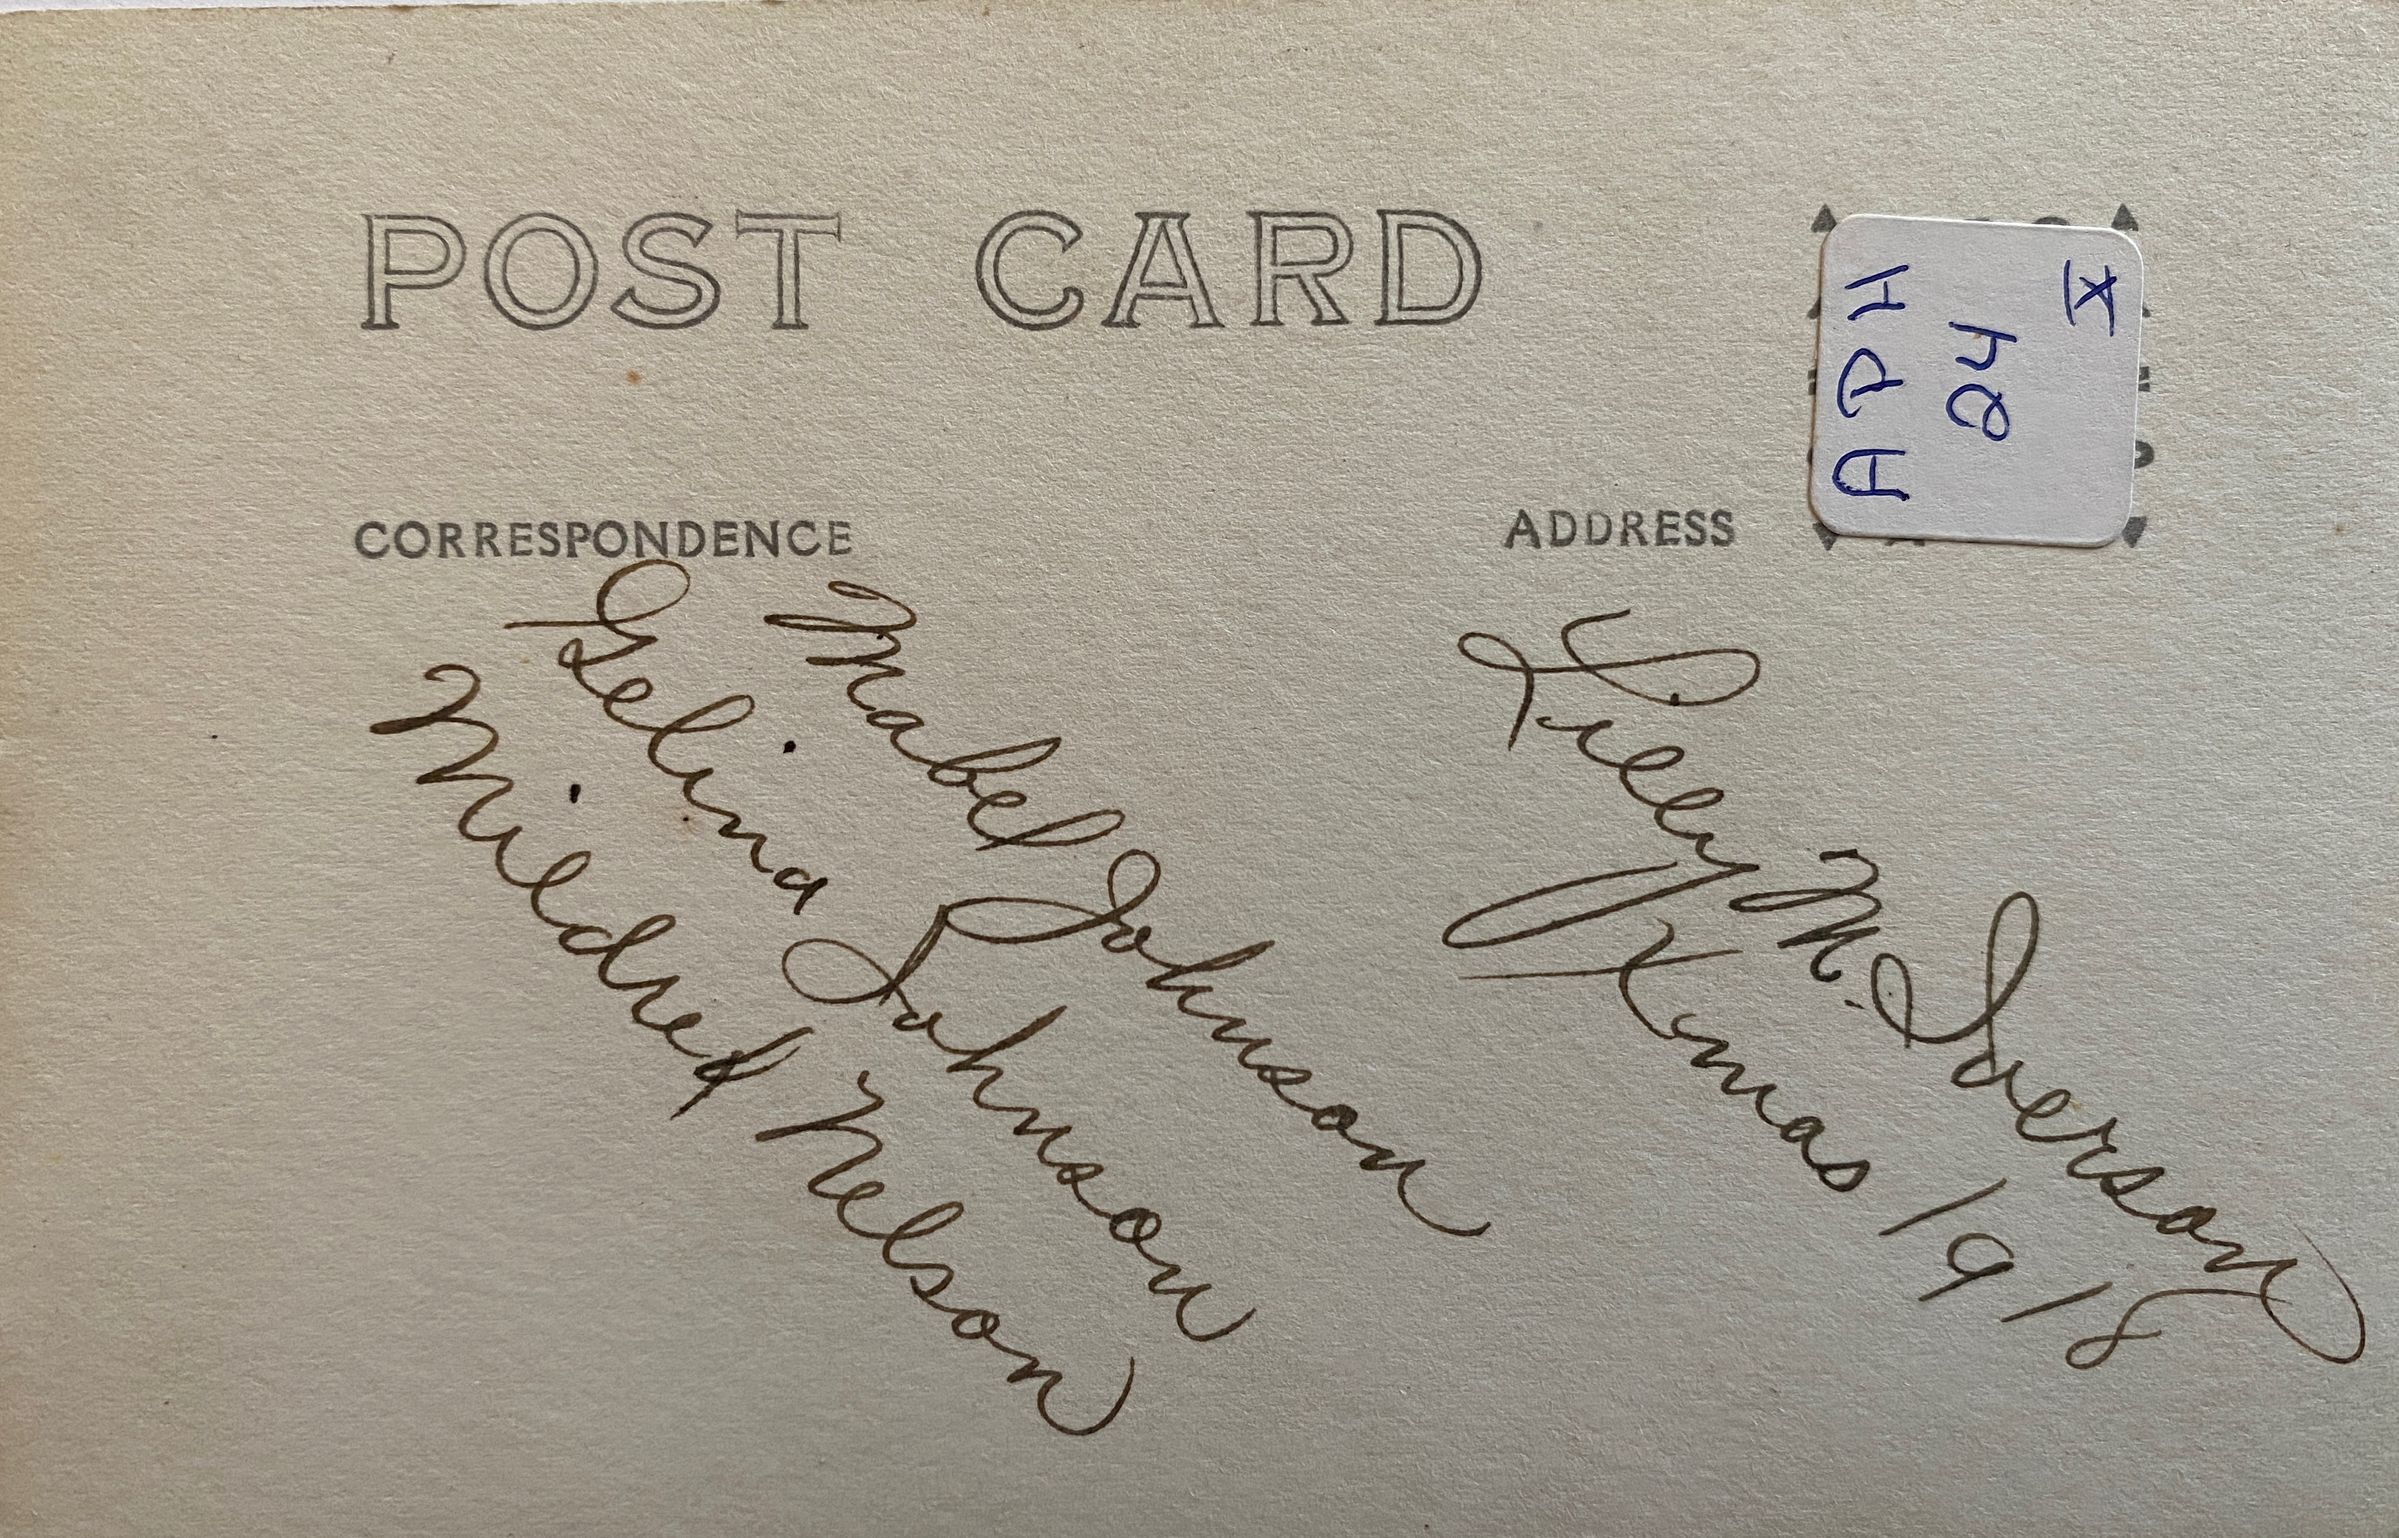 POST CARD
APH
24
X
CORRESPONDENCE
ADDRESS
Mabel Johnson
Gelina Johnson
Mildred Nelson
Lilly M. Iverson
Xmas 1918